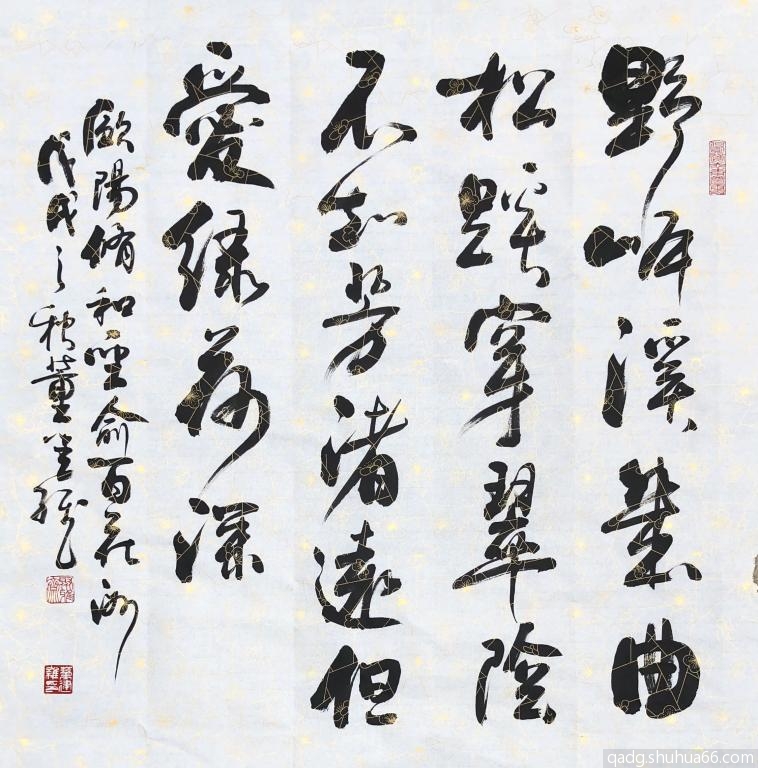 野岸溪幾曲
松蹊穿翠陰
不知芳渚遠但
愛綠荷深
歐陽脩和聖俞百花洲
戊戌之秋董
qadg.shuhua66.com